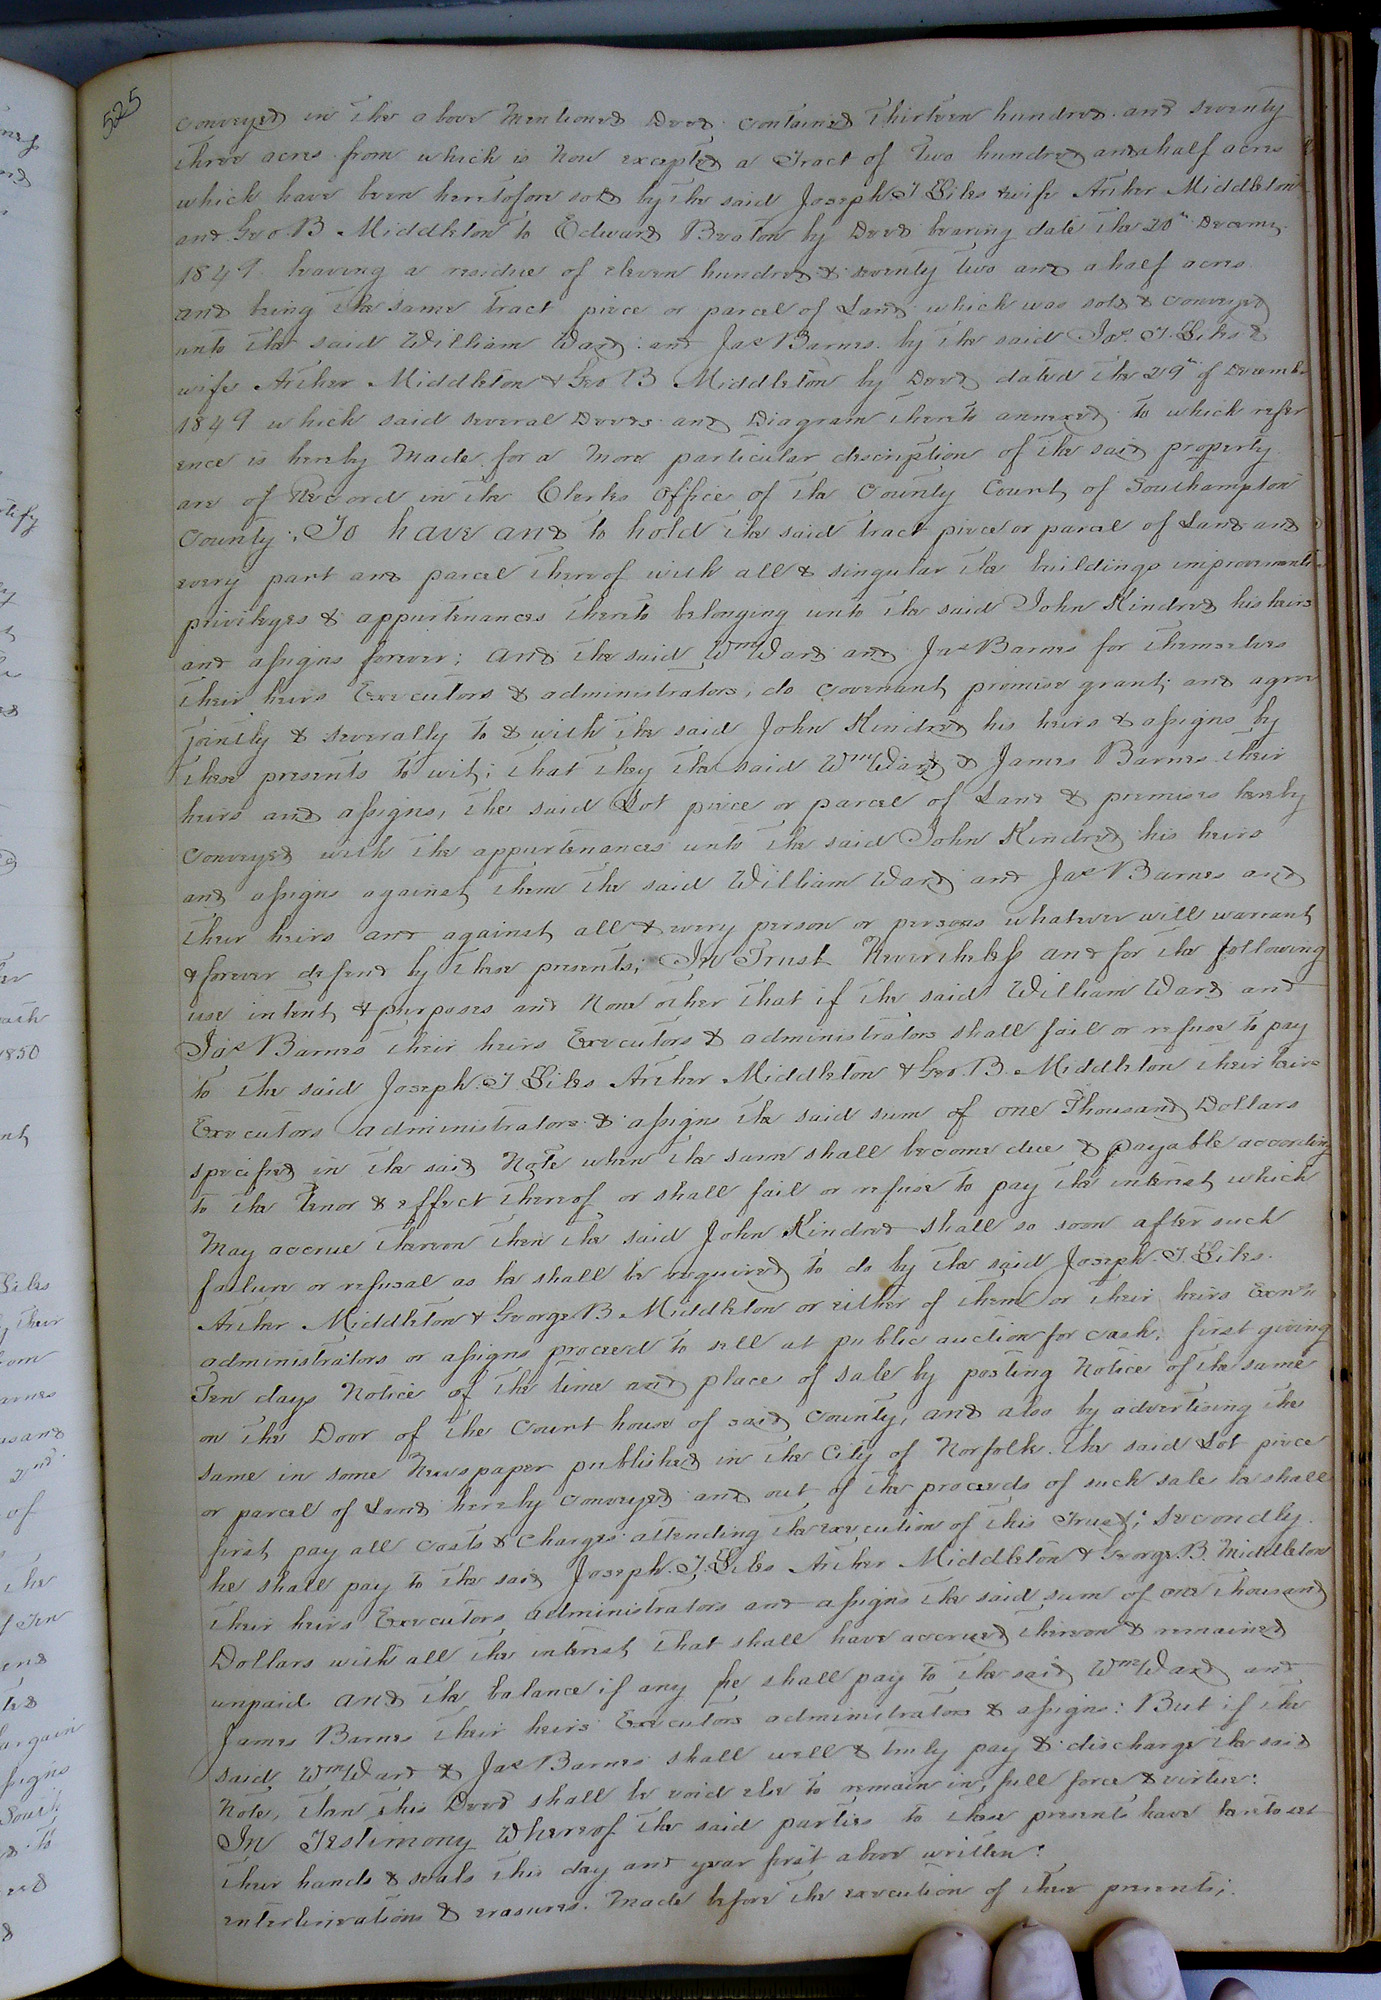 525
conveyed in the above Mentioned Deed contained Thirteen hundred and seventy
three acres from which is Now excepted a Tract of Two hundred and a half acres
which have been heretofore sold by the said Joseph T Liles & wife Archer Middleton
and Geo. B Middleton to Edward Beaton by Deed bearing date the 20th Decemr.
1849 leaving a residue of eleven hundred & seventy two and a half acres
and being the same tract piece or parcel of Land which was sold & conveyed
unto the said William Ward and Jas Barnes by the said Jos. T. Liles &
wife Archer Middleton & Geo B Middleton by Deed dated the 29th of Decembr
1849 which said several Deeds and Diagram thereto annexed to which refer
ence is hereby Made for a More particular description of the said property
are of Record in the Clerks Office of the County Court of Southampton
County; To have and to hold the said tract piece or parcel of Land and
every part and parcel thereof with all & singular the buildings improvements
privileges & appurtenances thereto belonging unto the said John Kindred his heirs
and assigns forever; And the said Wm Ward and Jas Barnes for themselves
their heirs Executors & administrators, do covenant, promise grant, and agree
jointly & severally to & with the said John Kindred his heirs & assigns by
these presents to wit; That they the said Wm Ward & James Barnes their
heirs and assigns, the said Lot piece or parcel of Land & premises hereby
conveyed with the appurtenances unto the said John Kindred his heirs
and assigns against them the said William Ward and Jas Barnes and
their heirs and against all & every person or persons whatever will warrant
& forever defend by these presents; In Trust Nevertheless and for the following
use intent & purposes and None other that if the said William Ward and
Jas Barnes their heirs Executors & administrators shall fail or refuse to pay
to the said Joseph. T Liles Archer Middleton & Geo. B. Middleton their heirs
Executors administrators & assigns the said sum of one Thousand Dollars
specified in the said Note when the same shall become due & payable according
to the Tenor & effect thereof or shall fail or refuse to pay the interest which
May accrue thereon then the said John Kindred shall so soon after such
failure or refusal as he shall be required to do by the said Joseph. T. Liles.
Archer Middleton & George B Middleton or either of them or their heirs Exers
administrators or assigns proceed to sell at public auction for cash, first giving
Ten days Notice of the time and place of sale by posting Notice of the same
on the Door of the Court house of said County, and also by advertising the
same in some Newspaper published in the City of Norfolk. the said Lot piece
or parcel of Land hereby conveyed and out of the proceeds of such sale he shall
first pay all costs & charges attending the execution of this Trust; secondly.
he shall pay to the said Joseph. T. Liles Archer Middleton & George. B. Middleton
their heirs Executors, administrators and assigns the said sum of one thousand
Dollars with all the interest that shall have accrued thereon & remained
unpaid and the balance if any he shall pay to the said Wm Ward and
James Barnes their heirs Executors administrators & assigns: But if the
said Wm Ward & Jas Barnes shall well & truly pay & discharge the said
Note, then this Deed shall be void else to remain in, full force & virtue:
In Testimony Whereof the said parties to these presents have hereto set
their hands & seals this day and year first above written:
enterlineations & erasures. Made before the execution of these presents;.